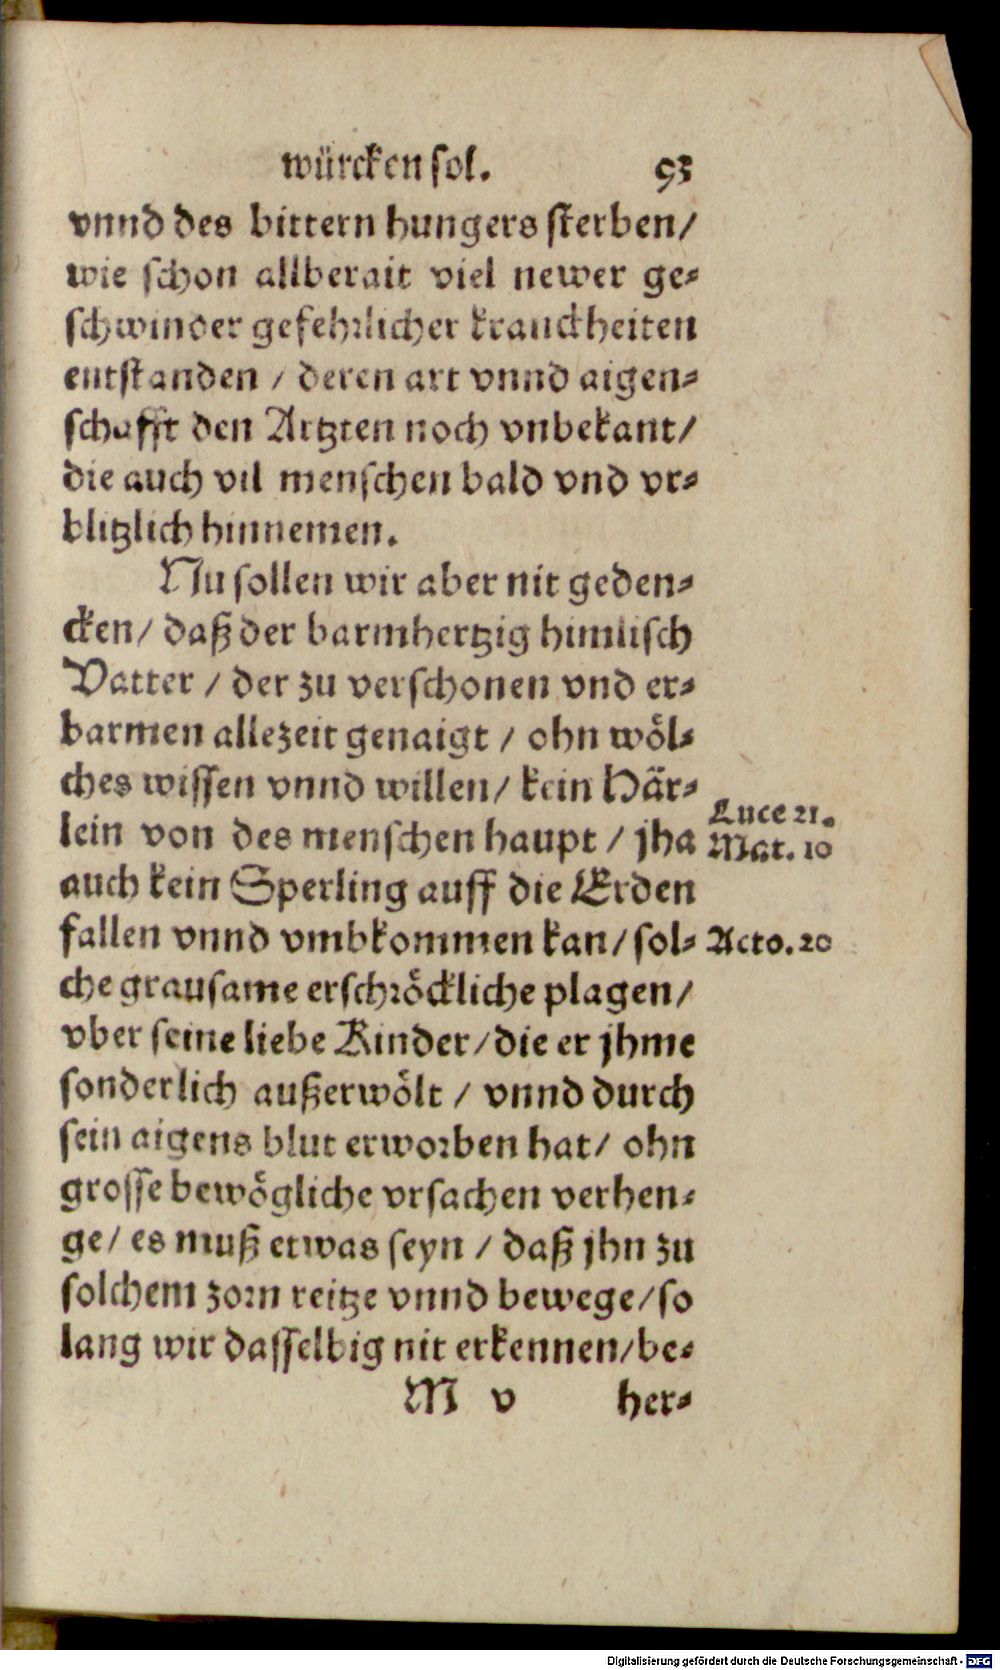 würcken sol. 93
vnnd des bittern hungers sterben/
wie schon allberait viel newer ge-
schwinder gefehrlicher kranckheiten
entstanden / deren art vnnd aigen-
schafft den Artzten noch vnbekant/
die auch vil menschen bald vnd vr-
blitzlich hinnemen.
Nu sollen wir aber nit geden-
cken/ daß der barmhertzig himlisch
Vatter / der zu verschonen vnd er-
barmen allezeit genaigt / ohn wöl-
ches wissen vnnd willen/ kein Här-
lein von des menschen haupt / jha
auch kein Sperling auff die Erden
fallen vnnd vmbkommen kan/ sol-
che grausame erschröckliche plagen/
vber seine liebe Kinder/die er jhme
sonderlich außerwölt / vnnd durch
sein aigens blut erworben hat/ ohn
grosse bewögliche vrsachen verhen-
ge/ es muß etwas seyn / daß jhn zu
solchem zorn reitze vnnd bewege/so
lang wir dasselbig nit erkennen/be-
M v her-
Luce 21.
Mat. 10
Acto. 20
Digitalisierung gefördert durch die Deutsche Forschungsgemeinschaft - DFG